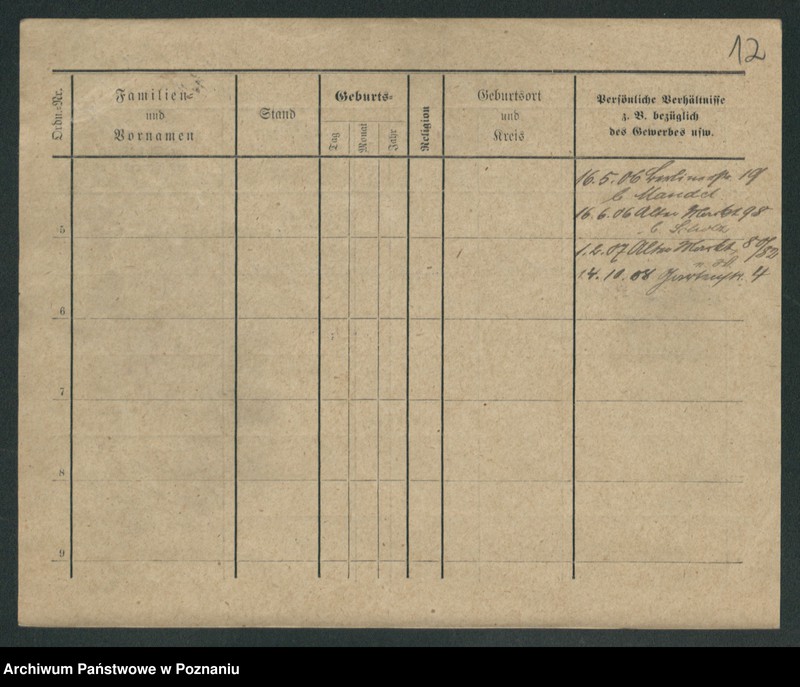 12
Ordn.=Nr.
Familien=
und
Vornamen
Stand
Geburts=
Tag
Monat
Jahr
Religion
Geburtsort
und
Kreis
Persönliche Verhältnisse
z. B. bezüglich
des Gewerbes usw.
16.5.06 19
b Mandel
16.6.06 Alter Markt 98
b Scholz
5
1.2.07 Alter Markt 80/82
14.10.08 4
6
7
8
9
Archiwum Państwowe w Poznaniu